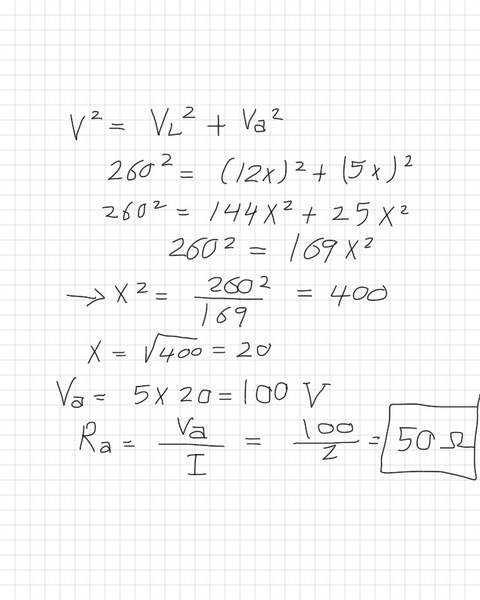 V² = V_L² + Va²
260² = (12x)² + (5x)²
260² = 144X² + 25X²
260² = 169X²
→ X² = 260²/169 = 400
X = √400 = 20
Va = 5X20 = 100 V
Ra = Va/I = 100/2 = 50Ω